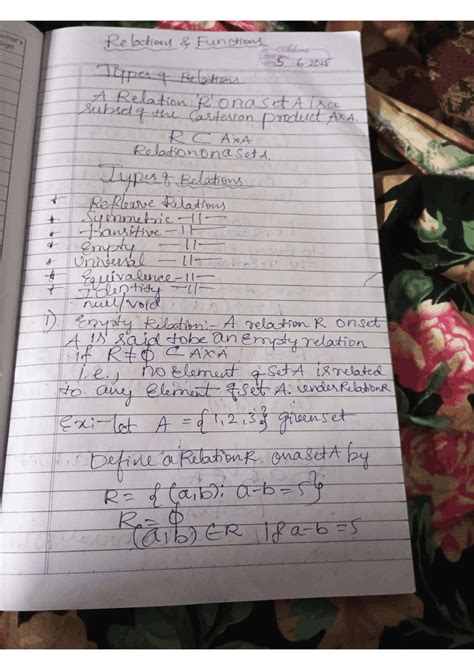 Relations & Functions
5 6-2025
Types of Relations
A Relation R on a set A is a
subset of the Cartesian product A×A.
R ⊂ A×A
Relation on a set A.
Types of Relations
Reflexive Relations
Symmetric -||-
transitive -||-
Empty -||-
Universal -||-
Equivalence -||-
Identity -||-
null/void
1) Empty Relation:- A relation R on set
A is said to be an Empty relation
if R ≠ ϕ ⊂ A×A
i.e., no Element of Set A is related
to any Element of Set A. under Relation R
Ex:- let A = {1, 2, 3} given set
Define a Relation R on a set A by
R = {(a,b): a-b = 5}
R = ϕ
(a,b) ∈ R if a-b = 5